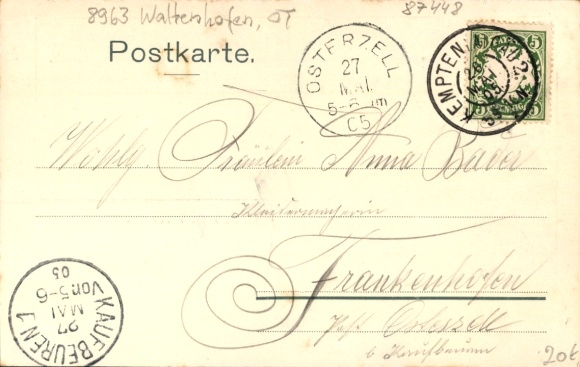 8963 Waltenhofen, OT
87448
Postkarte.
OSTERZELL
27
MAI.
05
KEMPTEN
5
5
Wohlg Fräulein Anna Bader
Kleidermacherin
Frankenhofen
Post Osterzell
b Kaufbeuren
KAUFBEUREN
27
MAI
Vor.5-6
05